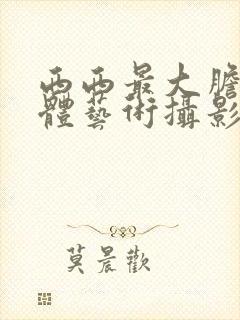 西西最大膽
體藝術攝影
莫晨歡